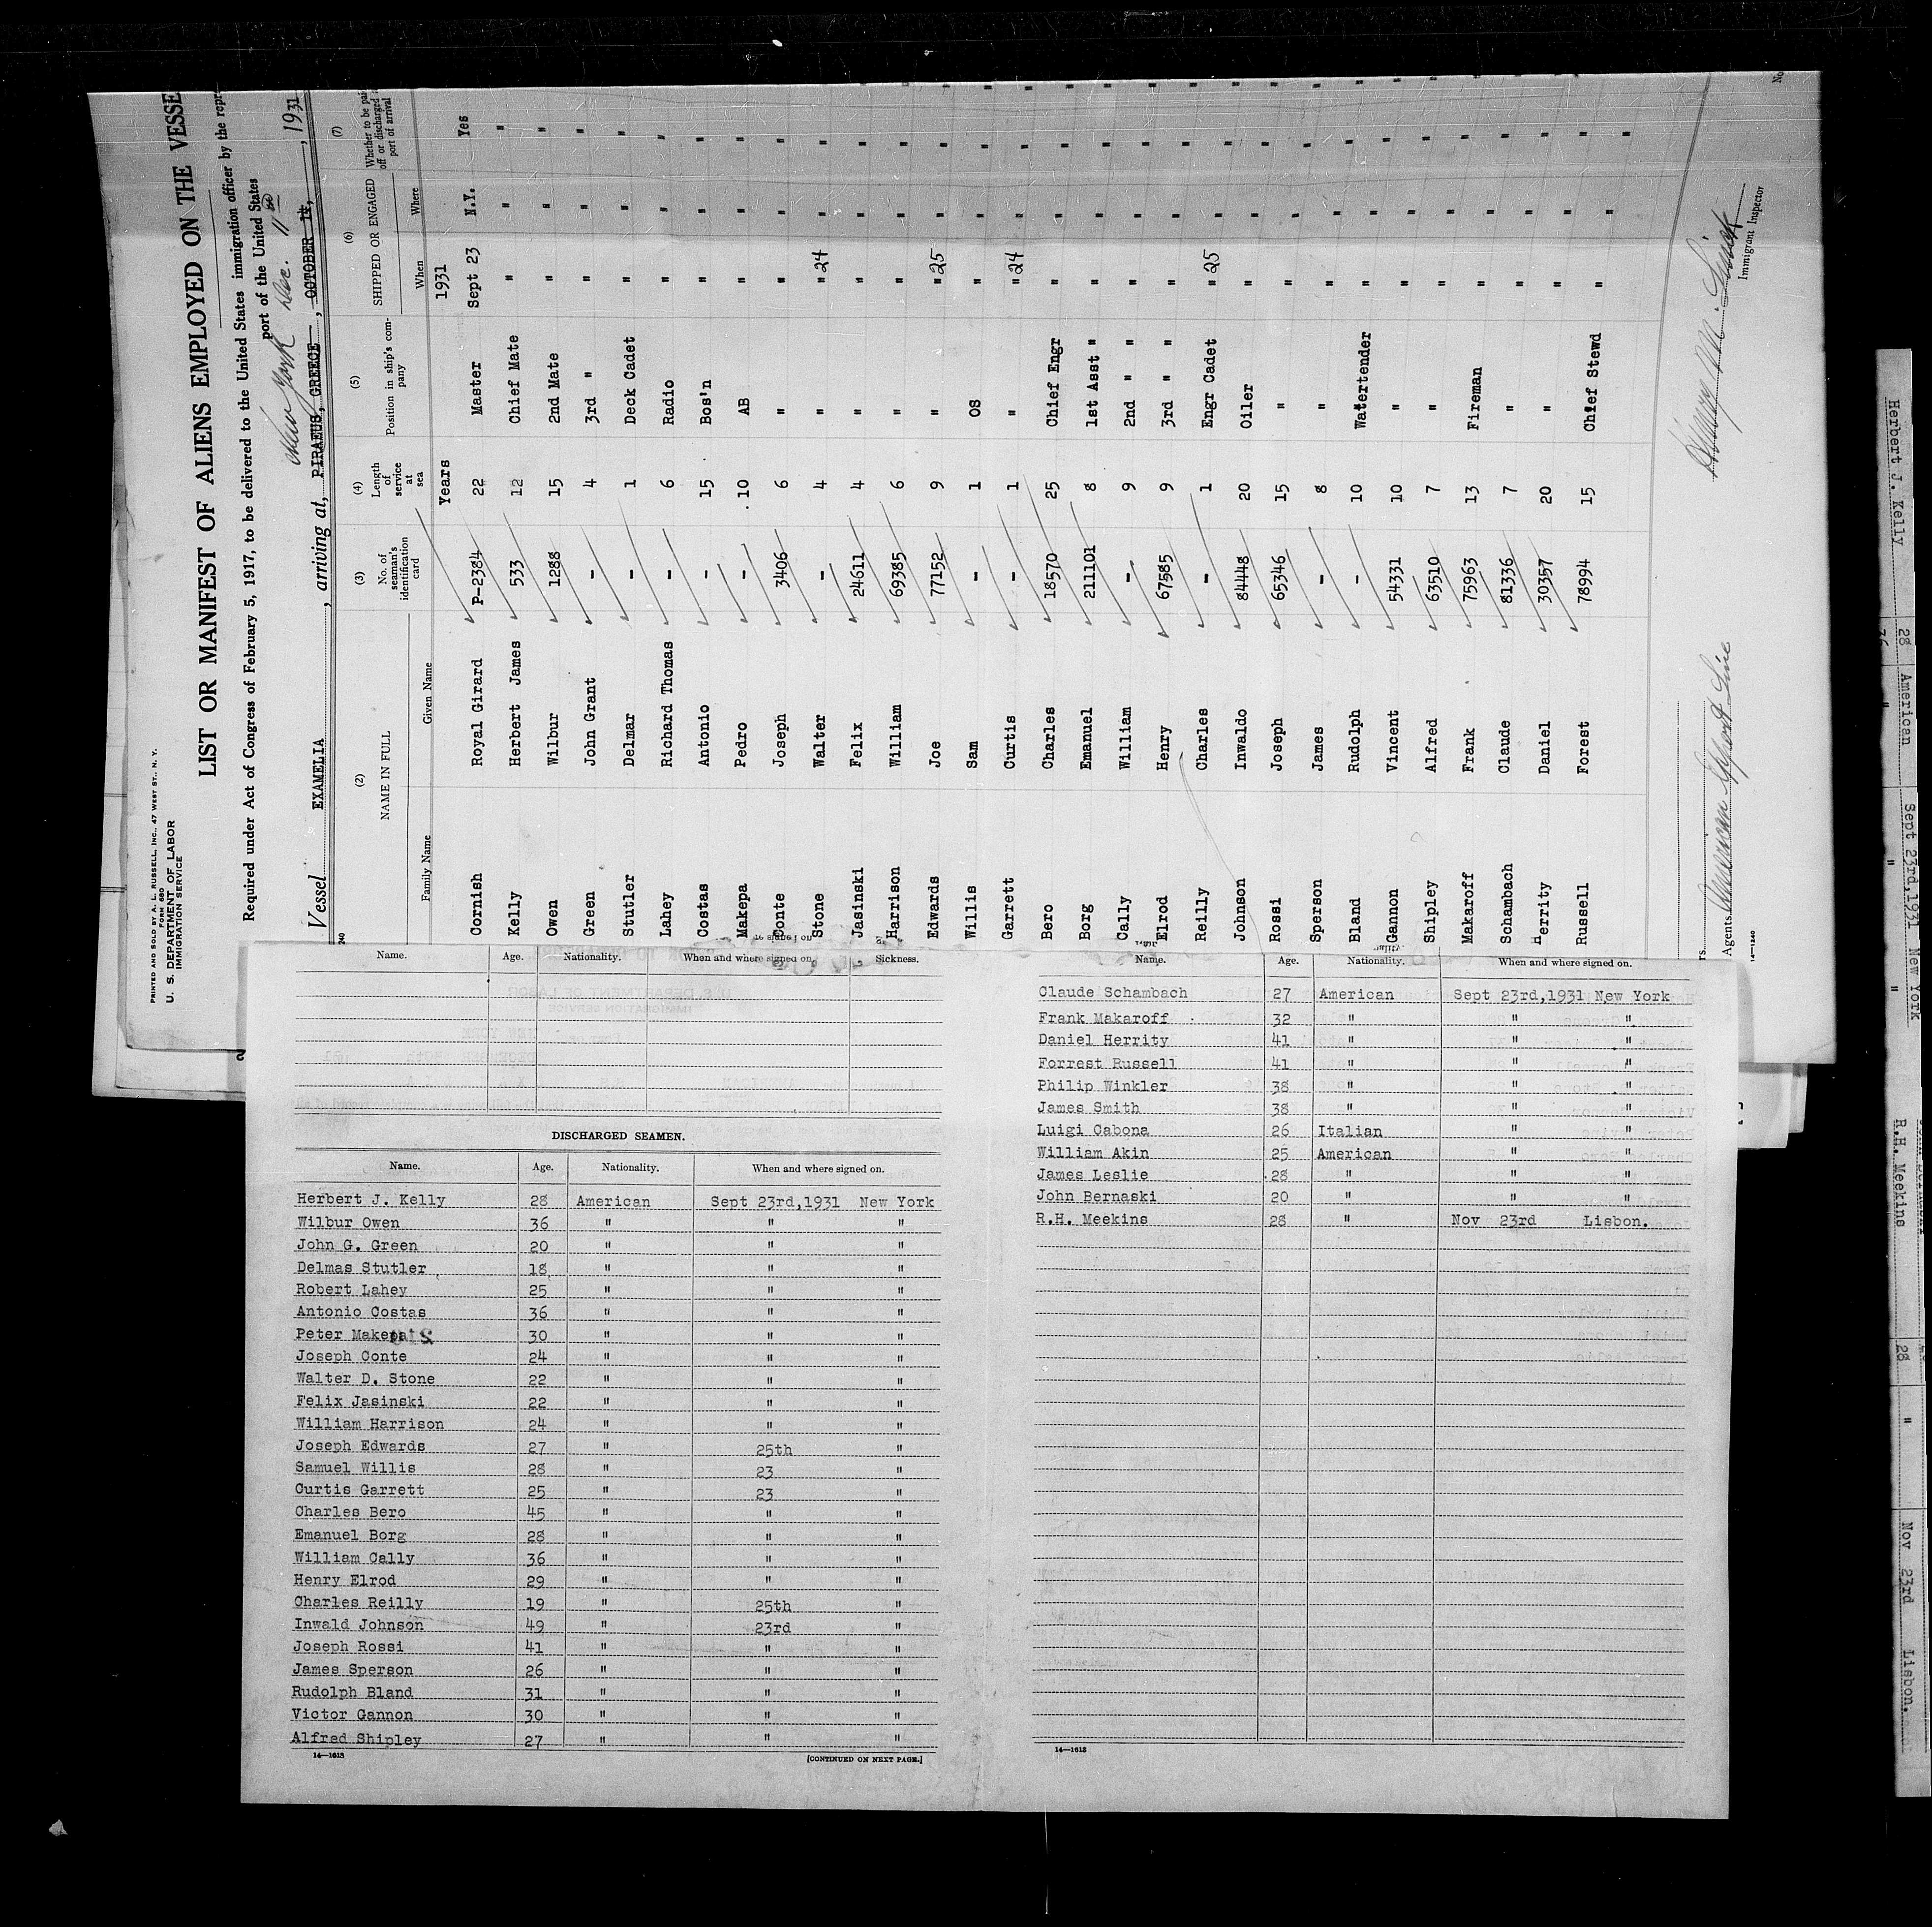 PRINTED AND SOLD BY A. L. RUSSELL, INC., 47 WEST ST., N. Y.
FORM 680
U. S. DEPARTMENT OF LABOR
IMMIGRATION SERVICE
LIST OR MANIFEST OF ALIENS EMPLOYED ON THE VESSE
Required under Act of Congress of February 5, 1917, to be delivered to the United States immigration officer by the repr
port of the United States
New York Dec. 11
Vessel EXAMELIA, arriving at, PIRAEUS, GREECE, OCTOBER 14, 1931
240
(2) (3) (4) (5) (6) (7)
NAME IN FULL No. of seaman's identification card Length of service at sea Position in ship's company SHIPPED OR ENGAGED Whether to be paid off or discharged at port of arrival
Family Name Given Name When Where
Years 1931
Cornish Royal Girard P-2384 22 Master Sept 23 N.Y. Yes
Kelly Herbert James 533 12 Chief Mate " " "
Owen Wilbur 1288 15 2nd Mate " " "
Green John Grant - 4 3rd " " " "
Stutler Delmar - 1 Deck Cadet " " "
Lahey Richard Thomas - 6 Radio " " "
Costas Antonio - 15 Bos'n " " "
Makepa Pedro - 10 AB " " "
Conte Joseph 3406 6 " " " "
Stone Walter - 4 " " 24 " "
Jasinski Felix 24611 4 " " " "
Harrison William 69385 6 " " " "
Edwards Joe 77152 9 " " 25 " "
Willis Sam - 1 OS " " "
Garrett Curtis - 1 " " 24 " "
Bero Charles 18570 25 Chief Engr " " "
Borg Emanuel 211101 8 1st Asst " " " "
Cally William - 9 2nd " " " " "
Elrod Henry 67585 9 3rd " " " " "
Reilly Charles - 1 Engr Cadet " 25 " "
Johnson Inwaldo 84448 20 Oiler " " "
Rossi Joseph 65346 15 " " " "
Sperson James - 8 " " " "
Bland Rudolph - 10 Watertender " " "
Gannon Vincent 54331 10 " " " "
Shipley Alfred 63510 7 " " " "
Makaroff Frank 75963 13 Fireman " " "
Schambach Claude 81336 7 " " " "
Herrity Daniel 30357 20 " " " "
Russell Forest 78994 15 Chief Stewd " " "
Agents American Export Line
Immigrant Inspector
14—1240
Name. Age. Nationality. When and where signed on. Sickness.
DISCHARGED SEAMEN.
Name. Age. Nationality. When and where signed on.
Herbert J. Kelly 28 American Sept 23rd,1931 New York
Wilbur Owen 36 " " "
John G. Green 20 " " "
Delmas Stutler 18 " " "
Robert Lahey 25 " " "
Antonio Costas 36 " " "
Peter Makepa 30 " " "
Joseph Conte 24 " " "
Walter D. Stone 22 " " "
Felix Jasinski 22 " " "
William Harrison 24 " " "
Joseph Edwards 27 " 25th "
Samuel Willis 28 " 23 "
Curtis Garrett 25 " 23 "
Charles Bero 45 " " "
Emanuel Borg 28 " " "
William Cally 36 " " "
Henry Elrod 29 " " "
Charles Reilly 19 " 25th "
Inwald Johnson 49 " 23rd "
Joseph Rossi 41 " " "
James Sperson 26 " " "
Rudolph Bland 31 " " "
Victor Gannon 30 " " "
Alfred Shipley 27 " " "
14—1613 [CONTINUED ON NEXT PAGE.]
Name. Age. Nationality. When and where signed on.
Claude Schambach 27 American Sept 23rd,1931 New York
Frank Makaroff 32 " " "
Daniel Herrity 41 " " "
Forrest Russell 41 " " "
Philip Winkler 38 " " "
James Smith 38 " " "
Luigi Cabona 26 Italian " "
William Akin 25 American " "
James Leslie 28 " " "
John Bernaski 20 " " "
R.H. Meekins 28 " Nov 23rd Lisbon.
14—1613
Herbert J. Kelly 28 American Sept 23rd,1931 New York
36 " " "
R.H. Meekins 28 " Nov 23rd Lisbon.